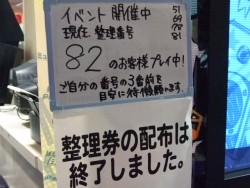 イベント開催中
現在 整理番号
51
69
78
81
82のお客様プレイ中!
ご自分の番号の3番前を
目安に待機願います。
整理券の配布は
終了しました。